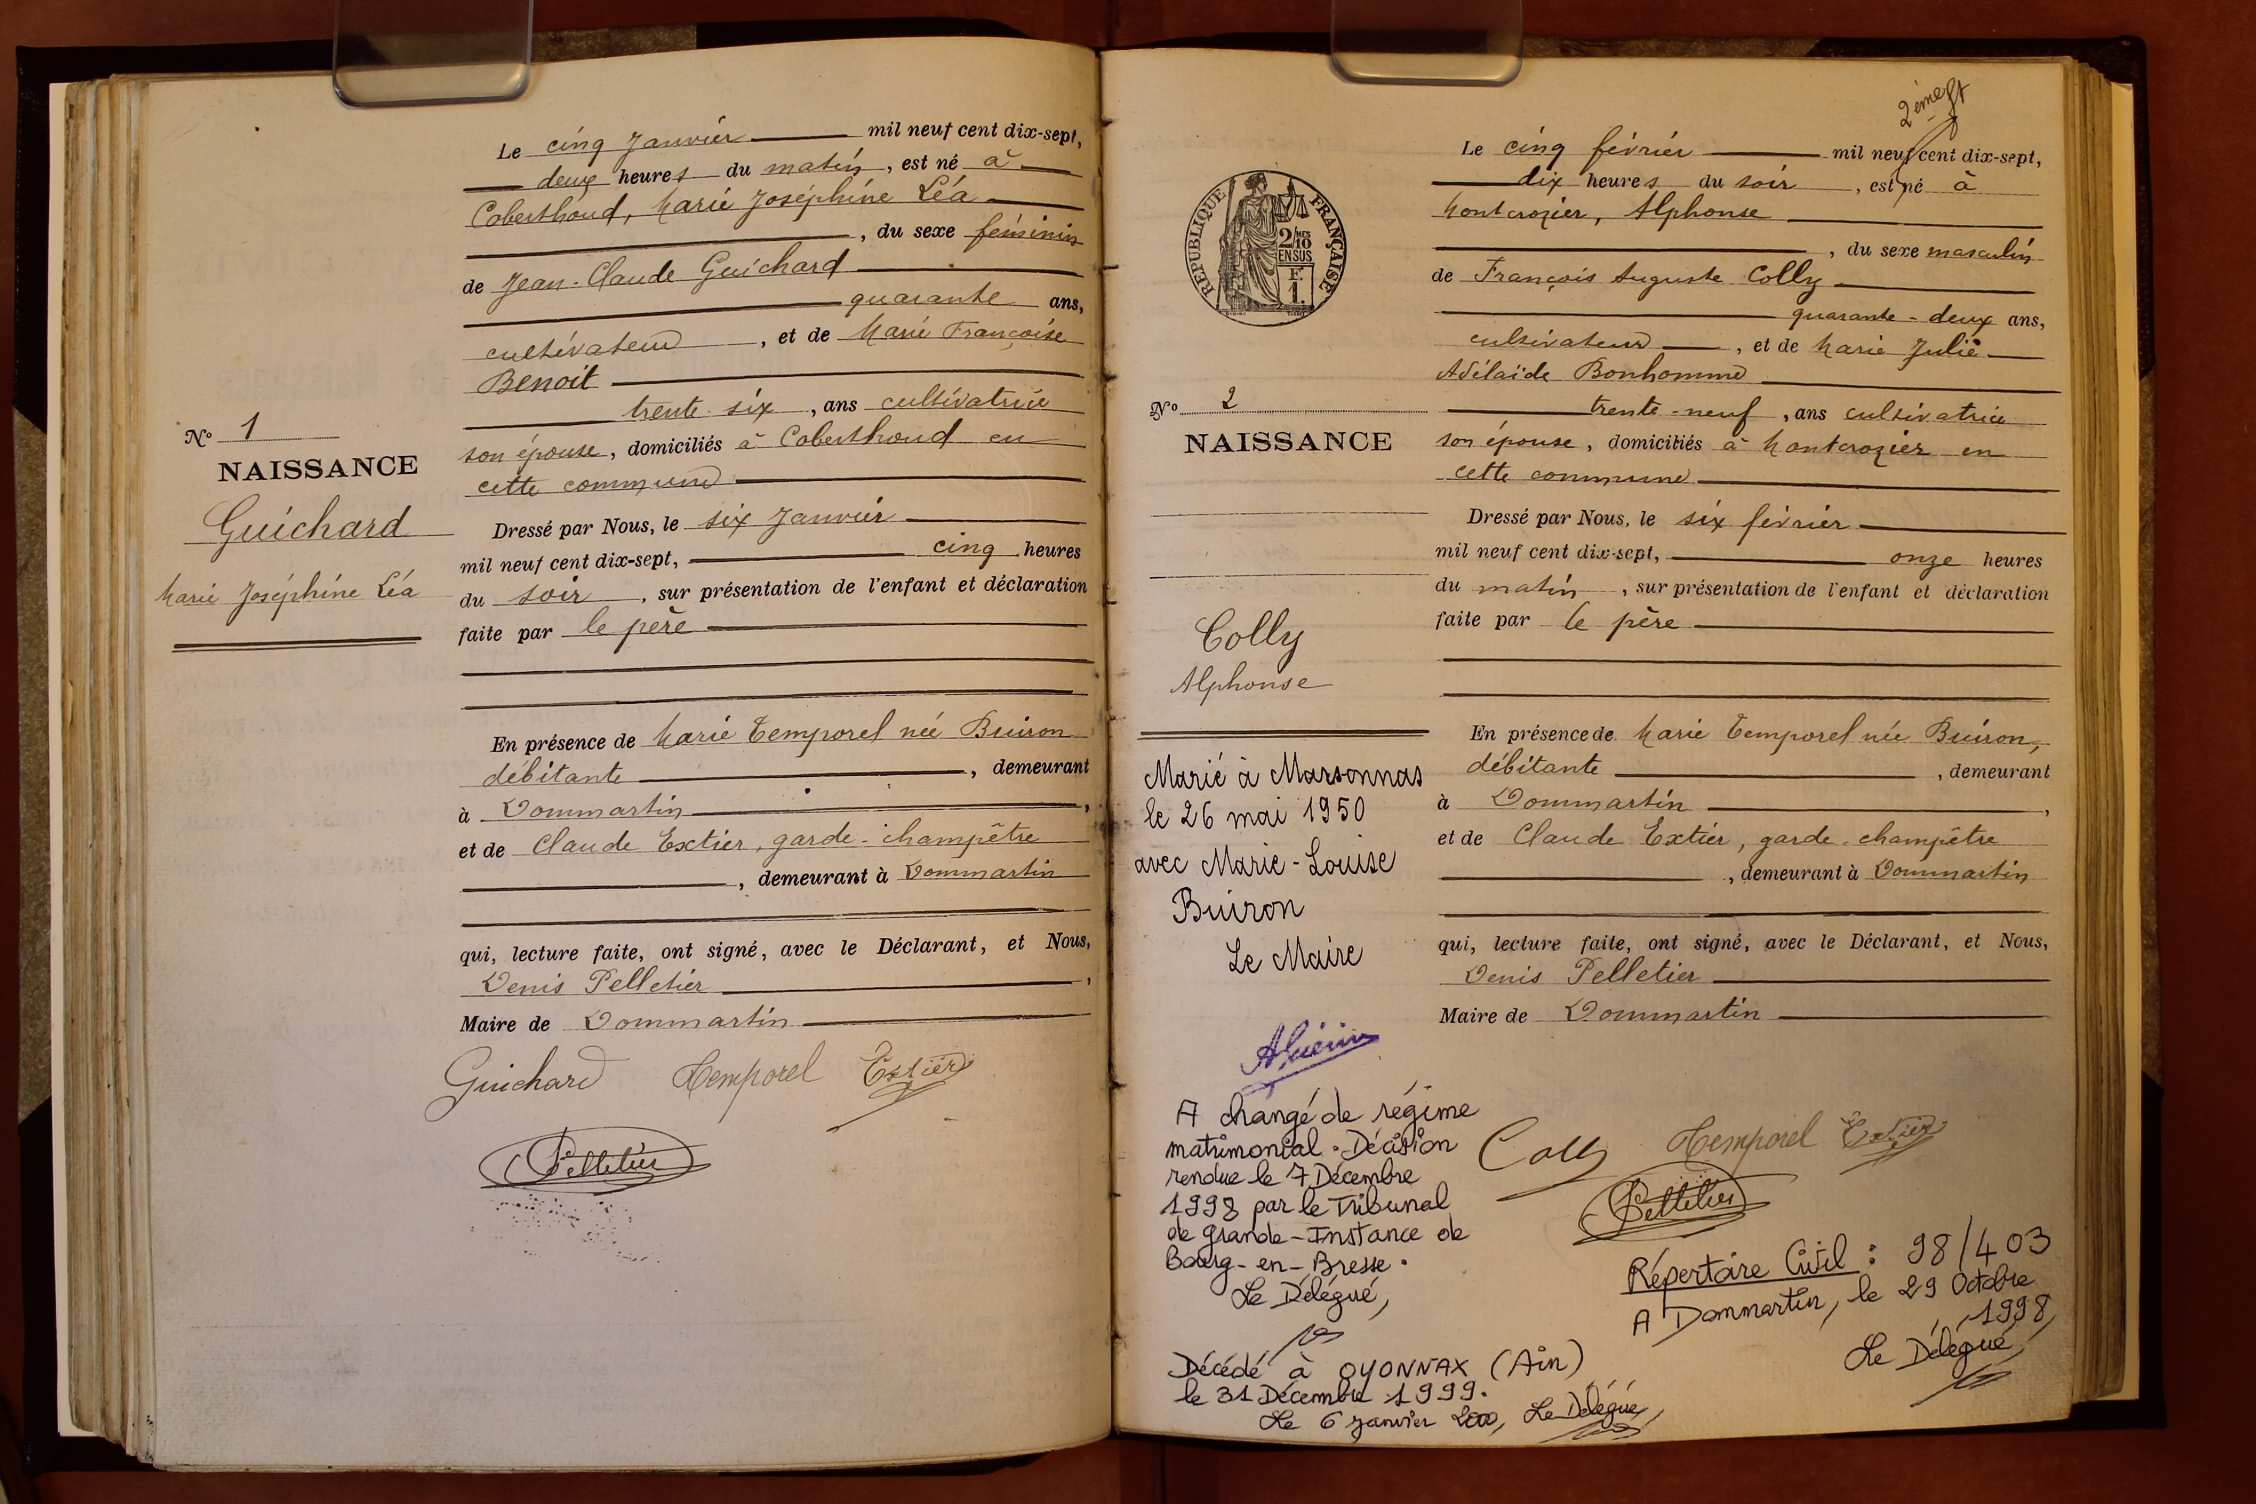 Le cinq Janvier mil neuf cent dix-sept,
deux heures du matin, est né à
Coberthoud, Marie Joséphine Léa
, du sexe féminin
de Jean-Claude Guichard
quarante ans,
cultivateur, et de Marie Françoise
Benoit
trente six, ans cultivatrice
son épouse, domiciliés à Coberthoud en
cette commune
Dressé par Nous, le six Janvier
mil neuf cent dix-sept, cinq heures
du soir, sur présentation de l'enfant et déclaration
faite par le père
En présence de Marie Temporel née Buiron
débitante, demeurant
à Dommartin,
et de Claude Extier, garde-champêtre
, demeurant à Dommartin
qui, lecture faite, ont signé, avec le Déclarant, et Nous,
Denis Pelletier,
Maire de Dommartin
Guichard Temporel Extier
Pelletier
No 1
NAISSANCE
Guichard
Marie Joséphine Léa
2ème ft
Le cinq février mil neuf cent dix-sept,
dix heures du soir, est né à
Montcrozier, Alphonse
, du sexe masculin
de François Auguste Colly
quarante-deux ans,
cultivateur, et de Marie Julie
Adélaïde Bonhomme
trente-neuf, ans cultivatrice
son épouse, domiciliés à Montcrozier en
cette commune
Dressé par Nous, le six février
mil neuf cent dix-sept, onze heures
du matin, sur présentation de l'enfant et déclaration
faite par le père
En présence de Marie Temporel née Buiron,
débitante, demeurant
à Dommartin,
et de Claude Extier, garde-champêtre
, demeurant à Dommartin
qui, lecture faite, ont signé, avec le Déclarant, et Nous,
Denis Pelletier
Maire de Dommartin
Colly Temporel Extier
Pelletier
Répertoire Civil : 98/403
A Dommartin, le 29 Octobre
1998,
Le Délégué,
REPUBLIQUE FRANÇAISE
2/10 MES
EN SUS
F.
1.
No 2
NAISSANCE
Colly
Alphonse
Marié à Marsonnas
le 26 mai 1950
avec Marie-Louise
Buiron
Le Maire
A changé de régime
matrimonial. Décision
rendue le 7 Décembre
1998 par le Tribunal
de grande-Instance de
Bourg-en-Bresse.
Le Délégué,
Décédé à OYONNAX (Ain)
le 31 Décembre 1999.
Le 6 janvier 2000, Le Délégué,